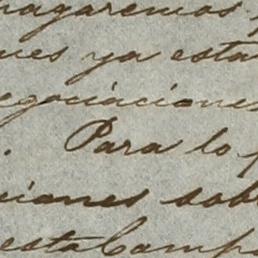 pagaremos
ues ya esta
negociaciones
. Para lo
ciones sob
esta Comp